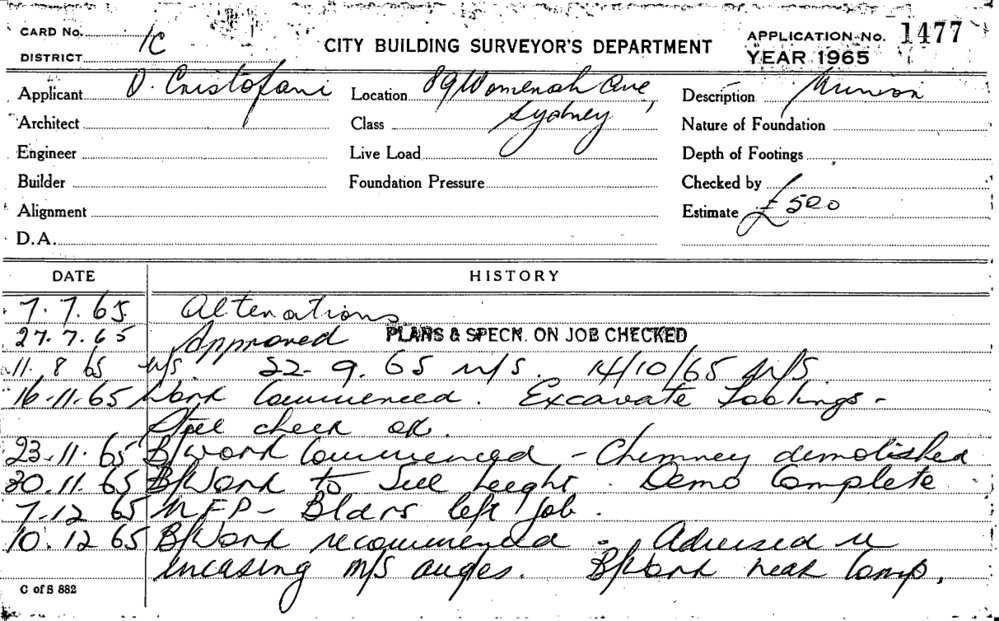 CARD No. 1C
DISTRICT
CITY BUILDING SURVEYOR'S DEPARTMENT
APPLICATION No. 1477
YEAR 1965
Applicant D. Cristofani Location 89 Womerah Ave, Description Minor
Architect Class Sydney Nature of Foundation
Engineer Live Load Depth of Footings
Builder Foundation Pressure Checked by
Alignment Estimate £500
D.A.
DATE HISTORY
7.7.65 Alterations
27.7.65 Approved PLANS & SPECN. ON JOB CHECKED
11.8 65 N/S 22.9.65 N/S. 14/10/65 N/S.
16.11.65 Work Commenced. Excavate Footings -
Steel check ok.
23.11.65 B/Work Commenced - Chimney demolished
30.11.65 B/Work to Sill height. Demo Complete
7.12 65 NFP - Bldrs left job.
10.12 65 B/Work recommenced - Advised re
incasing m/s angles. B/Work near Comp.
C of S 882